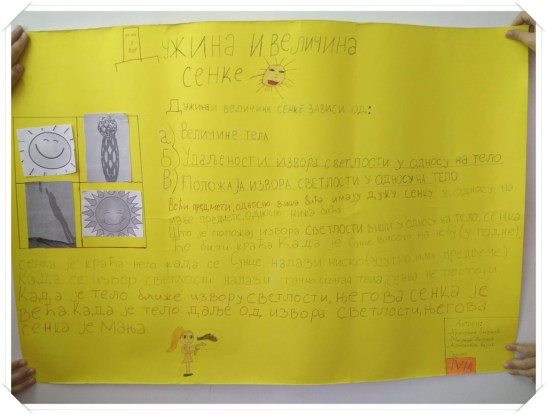 Дужина и величина
сенке
Дужина и величина сенке зависи од:
а) Величине тела
б) Удаљености извора светлости у односу на тело
в) Положаја извора светлости у односу на тело
Већи предмети, односно виша бића имају дужу сенку у односу на
мање предмете односно нижа бића.
Што је положај извора светлости виши у односу на тело, сенка
ће бити краћа. Када је сунце високо на небу (у подне)
сенка је краћа него када се сунце налази ниско (ујутро или предвече).
Када се извор светлости налази тачно изнад тела, сенка не постоји.
Када је тело ближе извору светлости, његова сенка је
већа када је тело даље од извора светлости, његова
сенка је мања.